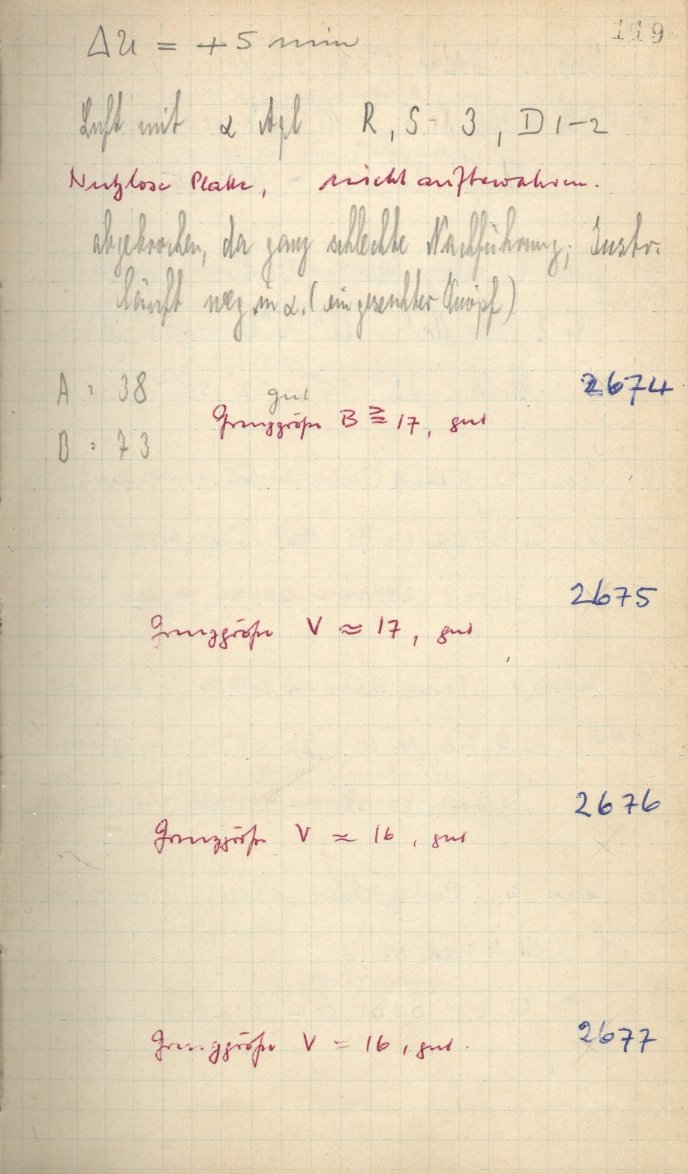 119
Δu = +5 min
Luft mit α Aql R, S-3, D 1-2
Nutzlose Platte, nicht aufbewahren.
abgebrochen, da ganz schlechte Nachführung; Instr.
läuft weg in α. (ein gesenkter Knopf)
2674
A = 38 gut
Grenzgröße B ≧ 17, gut
B = 73
2675
Grenzgröße V ≈ 17, gut
2676
Grenzgröße V ≈ 16, gut
2677
Grenzgröße V = 16, gut.